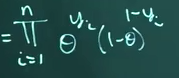 = ∏_{i=1}^{n} θ^{y_i} (1-θ)^{1-y_i}